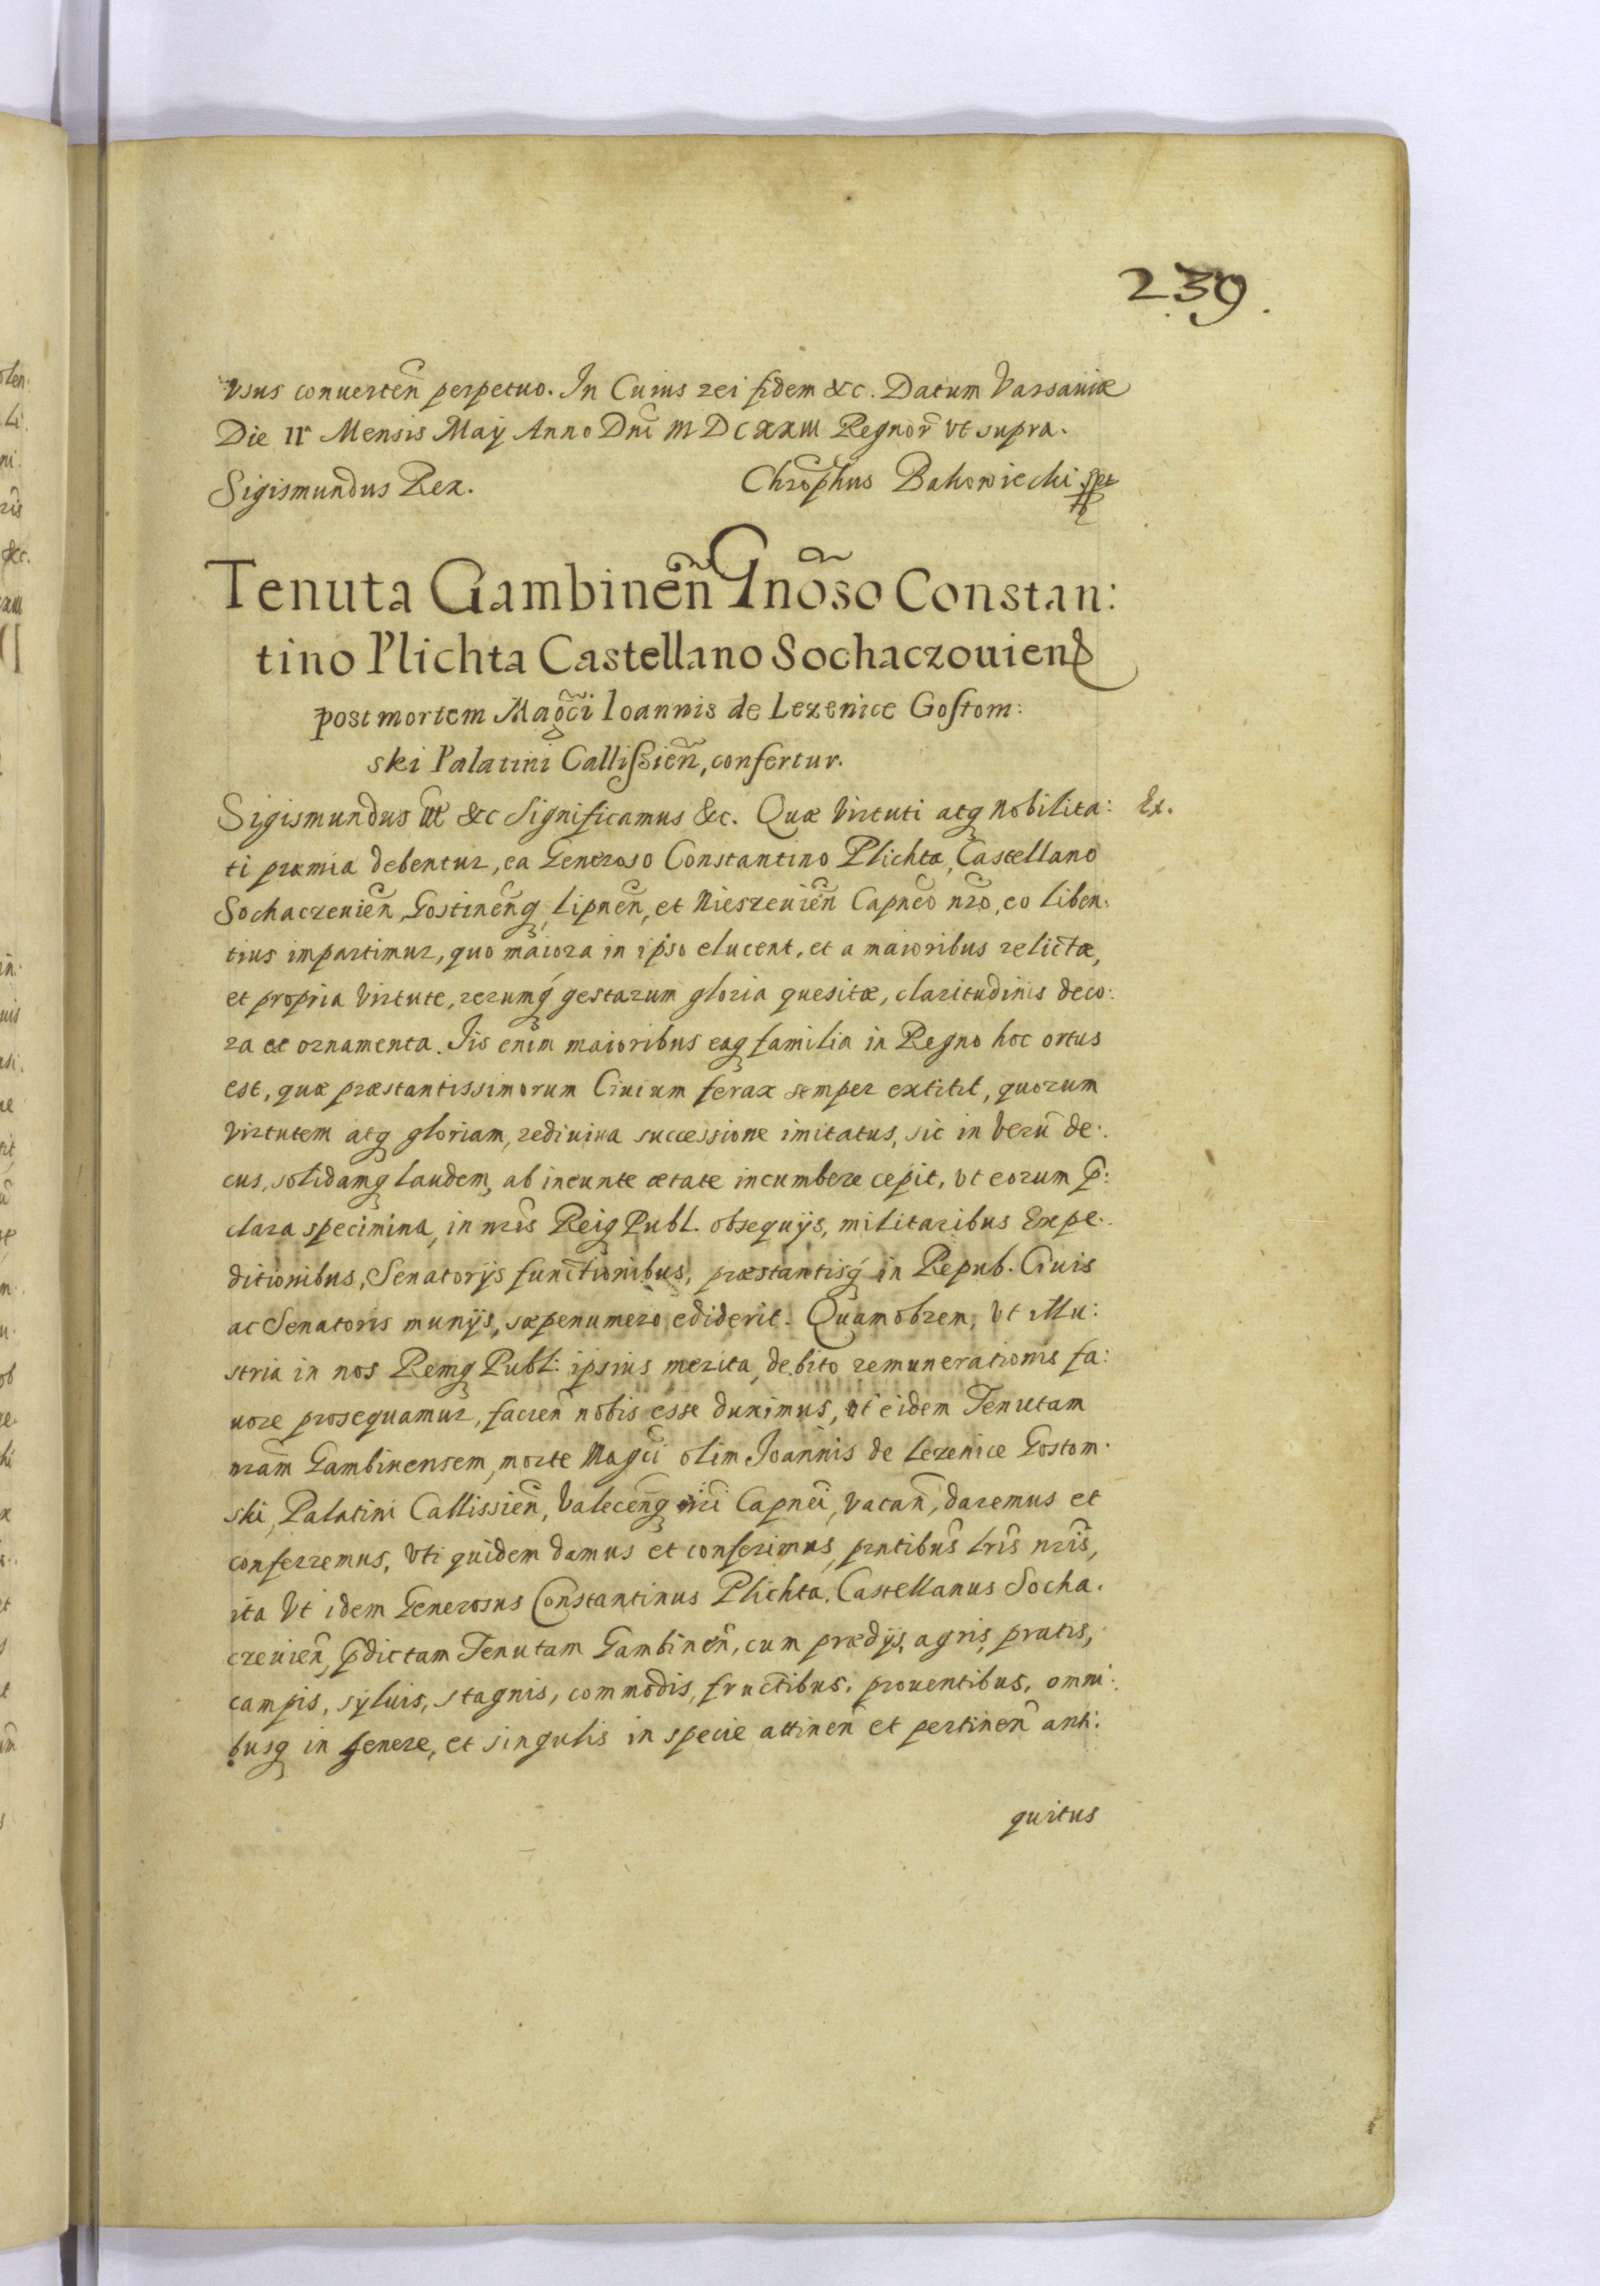 239.
vsus conuerteñ perpetuo. In Cuius rei fidem &c. Datum Varsauiæ
Die IIᵃ Mensis Maÿ Anno Dñi MDCXXIII Regnor̃ vt supra.
Sigismundus Rex. Chrõphus Bakowiecki
Tenuta Gambineñ Gnõso Constan:
tino Plichta Castellano Sochaczouien
post mortem Magc̃i Ioannis de Lezenice Gostom:
ski Palatini Callissieñ, confertur.
Sigismundus III &c Significamus &c. Quæ Virtuti atq nobilita: Ex.
ti præmia debentur, ea Generoso Constantino Plichta, Castellano
Sochaczeuieñ, Gostineñq, Lipneñ, et Nieszeuieñ Capneo nr̃o, eo liben:
tius impartimur, quo maiora in ipso elucent, et a maioribus relictæ,
et propria Virtute, rerumq́ gestarum gloria quesitæ, claritudinis deco:
ra et ornamenta. Iis enim maioribus eaq familia in Regno hoc ortus
est, quæ præstantissimorum Ciuium ferax semper extitit, quorum
virtutem atq gloriam, rediuiua successione imitatus, sic in verũ de:
cus, solidamq laudem, ab ineunte ætate incumbere cepit, vt eorum p̃:
clara specimina, in nr̃is Reiq Publ. obsequijs, militaribus Expe:
ditionibus, Senatorijs functionibus, præstantisq́ in Repub. Ciuis
ac Senatoris munijs, sæpenumero ediderit. Quamobrem, vt illu:
stria in nos Remq Publ: ipsius merita, debito remunerationis fa:
uore prosequamur, facieñ nobis esse duximus, vt eidem Tenutam
nr̃am Gambinensem, morte Magci olim Ioannis de Lezenice Gostom:
ski, Palatini Callissieñ, Valeceñq nr̃i Capnei, vacañ, daremus et
conferremus, vti quidem damus et conferimus, pñtibus lr̃is nr̃is,
ita vt idem Generosus Constantinus Plichta, Castellanus Socha:
czeuieñ, p̃dictam Tenutam Gambineñ, cum prædijs, agris, pratis,
campis, syluis, stagnis, commodis, fructibus, prouentibus, omni:
busq in genere, et singulis in specie attineñ et pertineñ anti:
quitus